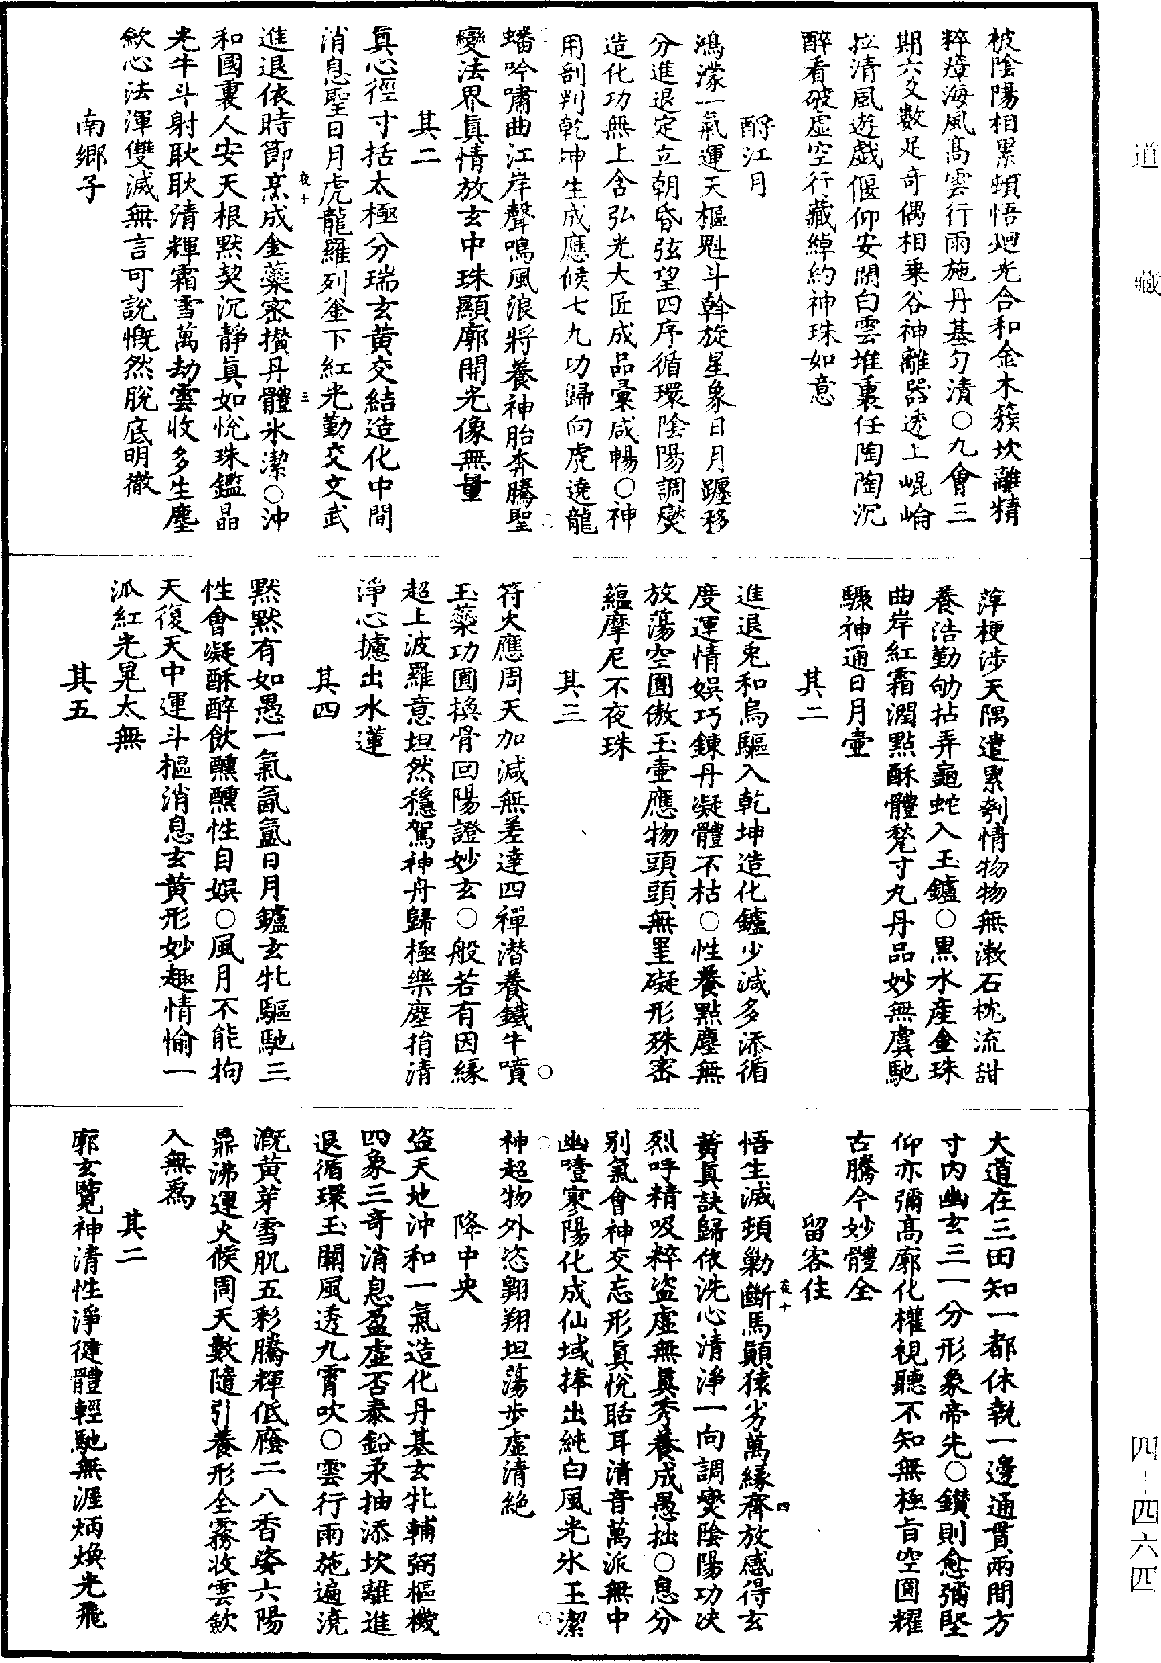 道藏
四-四六四
被陰陽相累頓悟迴光合和金木簇坎離精
粹瓊海風高雲行雨施丹基勻清○九會三
期六爻數足奇偶相乗谷神離器透上崐崘
拉清風遊戲偃仰安閑白雲堆裏任陶陶沉
醉看破虛空行藏綽約神珠如意
酹江月
鴻濛一氣運天樞魁斗斡旋星象日月躔移
分進退定立朝昏弦望四序循環陰陽調燮
造化功無上含弘光大匠成品彙咸暢○神
用剖判乾坤生成應候七九功歸向虎遶龍
蟠吟嘯曲江岸聲鳴風浪將養神胎奔騰聖
變法界真情放玄中珠顯廓開光像無量
其二
真心徑寸括太極分瑞玄黄交結造化中間
消息聖日月虎龍羅列釡下紅光勤交文武
進退依時節烹成金藥宻攅丹體氷潔○沖
和國裏人安天根黙契沉靜真如恱珠鑑晶
光牛斗射耿耿清輝霜雪萬劫雲收多生塵
歛心法渾雙滅無言可說慨然脫底明徹
南鄉子
萍梗涉天隅遣累剗情物物無漱石枕流甜
養浩勤劬拈弄龜蛇入玉鑪○黒水産金珠
曲岸紅霜潤點酥體瑩寸丸丹品妙無虞馳
驟神通日月壷
其二
進退兎和烏驅入乾坤造化鑪少減多添循
度運情娯巧錬丹凝體不枯○性養點塵無
放蕩空圎傲玉壷應物頭頭無罣礙形殊宻
蘊摩尼不夜珠
其三
符火應周天加減無差達四禪潜養鐵牛噴
玉藥功圎換骨回陽證妙玄○般若有因緣
超上波羅意坦然穩駕神舟歸極樂塵捎清
淨心攄出水蓮
其四
黙黙有如愚一氣氤氳日月鑪玄牝驅馳三
性會凝酥醉飲醺醺性自娯○風月不能拘
天復天中運斗樞消息玄黄形妙趣情愉一
派紅光晃太無
其五
大道在三田知一都休執一邊通貫兩間方
寸内幽玄三一分形象帝先○鑚則愈彌堅
仰亦彌高廓化權視聽不知無極旨空圎耀
古騰今妙體全
留客住
悟生滅頓勦斷馬顛猿劣萬緣齊放感得玄
黄真訣歸依洗心清淨一向調燮陰陽功决
烈呼精吸粹盗虛無真秀養成愚拙○息分
别氣會神交忘形真恱聒耳清音萬派無中
幽噎寒陽化成仙域捧出純白風光氷玉潔
神超物外恣翺翔坦蕩歩虛清絶
降中央
盗天地沖和一氣造化丹基玄牝輔弼樞機
四象三奇消息盈虛否泰鉛汞抽添坎離進
退循環玉關風透九霄吹○雲行雨施遍澆
溉黄芽雪肌五彩騰輝低廢二八香姿六陽
鼎沸運火候周天數隨引養形全霧收雲歛
入無爲
其二
廓玄覽神清性淨健體輕馳無涯炳煥光飛